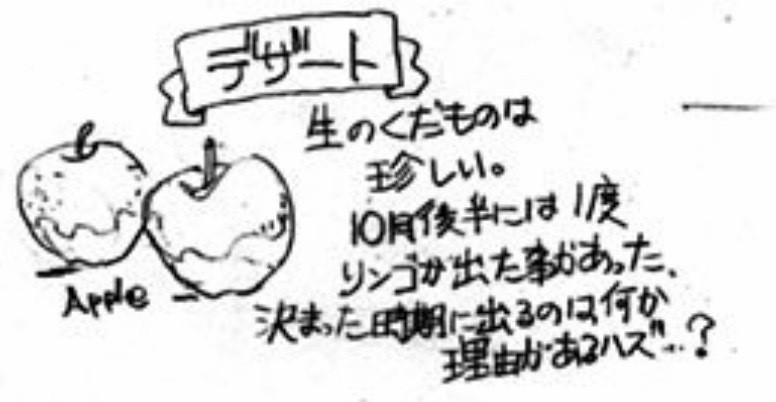 デザート
生のくだものは
珍しい。
10月後半には1度
リンゴが出た事があった、
決まった時期に出るのは何か
理由があるハズ…?
Apple